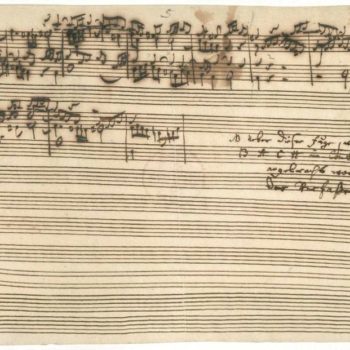 5
ueber dieser Fuge
B A C H im
angebracht
der Verfaße